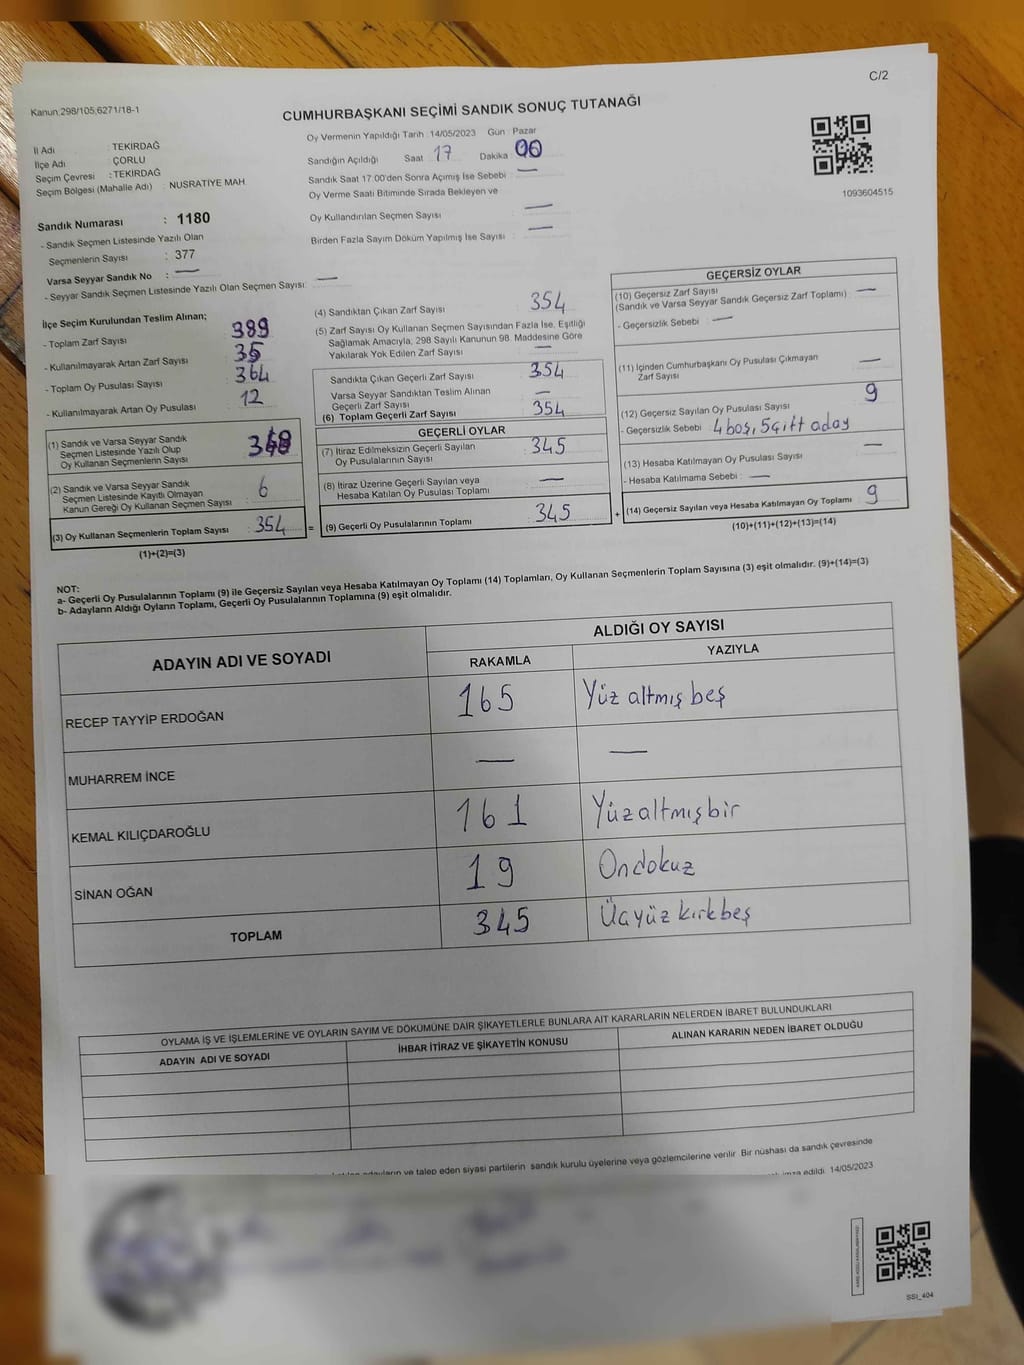 C/2
Kanun;298/105;6271/18-1
CUMHURBAŞKANI SEÇİMİ SANDIK SONUÇ TUTANAĞI
İl Adı : TEKİRDAĞ
İlçe Adı : ÇORLU
Seçim Çevresi : TEKİRDAĞ
Seçim Bölgesi (Mahalle Adı) : NUSRATİYE MAH
Oy Vermenin Yapıldığı Tarih 14/05/2023 Gün Pazar
Sandığın Açıldığı Saat 17 Dakika 00
Sandık Saat 17:00'den Sonra Açımış İse Sebebi : —
Oy Verme Saati Bitiminde Sırada Bekleyen ve
Oy Kullandırılan Seçmen Sayısı : —
Birden Fazla Sayım Döküm Yapılmış İse Sayısı : —
1093604515
Sandık Numarası : 1180
- Sandık Seçmen Listesinde Yazılı Olan
Seçmenlerin Sayısı : 377
Varsa Seyyar Sandık No : —
- Seyyar Sandık Seçmen Listesinde Yazılı Olan Seçmen Sayısı: —
İlçe Seçim Kurulundan Teslim Alınan;
- Toplam Zarf Sayısı : 389
- Kullanılmayarak Artan Zarf Sayısı : 35
- Toplam Oy Pusulası Sayısı : 364
- Kullanılmayarak Artan Oy Pusulası : 12
(1) Sandık ve Varsa Seyyar Sandık
Seçmen Listesinde Yazılı Olup
Oy Kullanan Seçmenlerin Sayısı
(2) Sandık ve Varsa Seyyar Sandık
Seçmen Listesinde Kayıtlı Olmayan
Kanun Gereği Oy Kullanan Seçmen Sayısı : 6
(3) Oy Kullanan Seçmenlerin Toplam Sayısı : 354 =
(1)+(2)=(3)
(4) Sandıktan Çıkan Zarf Sayısı 354
(5) Zarf Sayısı Oy Kullanan Seçmen Sayısından Fazla İse, Eşitliği
Sağlamak Amacıyla, 298 Sayılı Kanunun 98. Maddesine Göre
Yakılarak Yok Edilen Zarf Sayısı : —
Sandıkta Çıkan Geçerli Zarf Sayısı : 354
Varsa Seyyar Sandıktan Teslim Alınan
Geçerli Zarf Sayısı : —
(6) Toplam Geçerli Zarf Sayısı : 354
GEÇERLİ OYLAR
(7) İtiraz Edilmeksizin Geçerli Sayılan
Oy Pusulalarının Sayısı : 345
(8) İtiraz Üzerine Geçerli Sayılan veya
Hesaba Katılan Oy Pusulası Toplamı : —
(9) Geçerli Oy Pusulalarının Toplamı : 345 +
GEÇERSİZ OYLAR
(10) Geçersiz Zarf Sayısı
(Sandık ve Varsa Seyyar Sandık Geçersiz Zarf Toplamı) : —
- Geçersizlik Sebebi : —
(11) İçinden Cumhurbaşkanı Oy Pusulası Çıkmayan
Zarf Sayısı : —
(12) Geçersiz Sayılan Oy Pusulası Sayısı : 9
- Geçersizlik Sebebi : 4 boş, 5 çift aday
(13) Hesaba Katılmayan Oy Pusulası Sayısı : —
- Hesaba Katılmama Sebebi : —
(14) Geçersiz Sayılan veya Hesaba Katılmayan Oy Toplamı : 9
(10)+(11)+(12)+(13)=(14)
NOT:
a- Geçerli Oy Pusulalarının Toplamı (9) ile Geçersiz Sayılan veya Hesaba Katılmayan Oy Toplamı (14) Toplamları, Oy Kullanan Seçmenlerin Toplam Sayısına (3) eşit olmalıdır. (9)+(14)=(3)
b- Adayların Aldığı Oyların Toplamı, Geçerli Oy Pusulalarının Toplamına (9) eşit olmalıdır.
ADAYIN ADI VE SOYADI
ALDIĞI OY SAYISI
RAKAMLA YAZIYLA
RECEP TAYYİP ERDOĞAN 165 Yüz altmış beş
MUHARREM İNCE — —
KEMAL KILIÇDAROĞLU 161 Yüzaltmışbir
SİNAN OĞAN 19 Ondokuz
TOPLAM 345 Üçyüz kırkbeş
OYLAMA İŞ VE İŞLEMLERİNE VE OYLARIN SAYIM VE DÖKÜMÜNE DAİR ŞİKAYETLERLE BUNLARA AİT KARARLARIN NELERDEN İBARET BULUNDUKLARI
ADAYIN ADI VE SOYADI İHBAR İTİRAZ VE ŞİKAYETİN KONUSU ALINAN KARARIN NEDEN İBARET OLDUĞU
adayların ve talep eden siyasi partilerin sandık kurulu üyelerine veya gözlemcilerine verilir. Bir nüshası da sandık çevresinde
imza edildi. 14/05/2023
SSİ_404